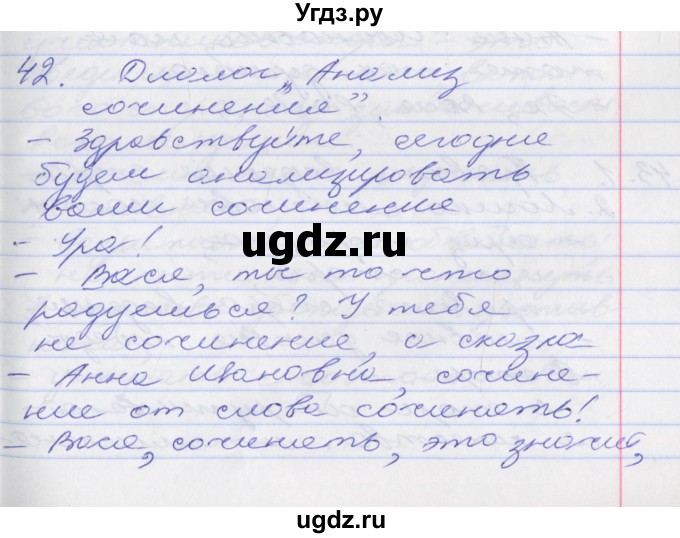 Угдз.ру
42. Диалог „Анализ
сочинения”.
– Здравствуйте, сегодня
будем анализировать
ваши сочинения
ugdz.ru
– Ура!
– Вася, ты то что
радуешься? У тебя
не сочинение, а сказка
– Анна Ивановна, сочине-
ние от слова сочинять!
– Вася, сочинять, это значит,
ugdz.ru